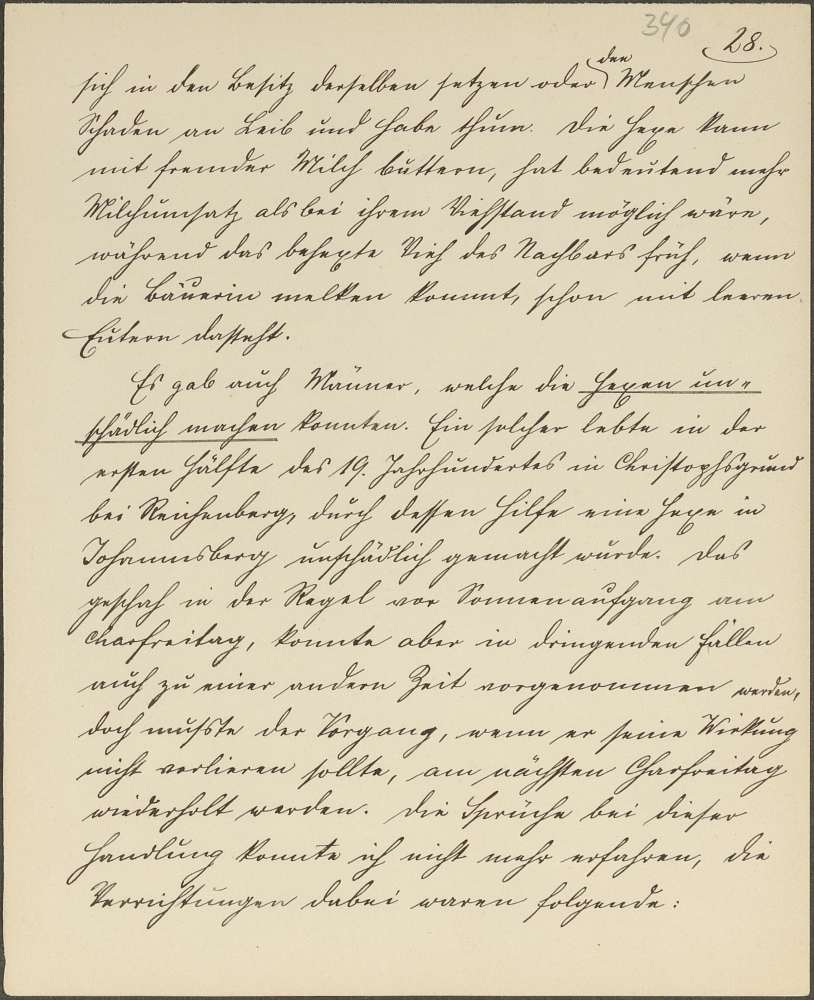 340
28.
sich in den Besitz derselben setzen oder den Menschen
Schaden an Leib und Habe thun. Die Hexe kann
mit fremder Milch buttern, hat bedeutend mehr
Milchumsatz als bei ihrem Viehstand möglich wäre,
während das behexte Vieh des Nachbars früh, wenn
die Bäuerin melken kommt, schon mit leeren
Eutern dasteht.
Es gab auch Männer, welche die Hexen un-
schädlich machen konnten. Ein solcher lebte in der
ersten Hälfte des 19. Jahrhundertes in Christophsgrund
bei Reichenberg, durch dessen Hilfe eine Hexe in
Johannesberg unschädlich gemacht wurde. Das
geschah in der Regel vor Sonnenaufgang am
Charfreitag, konnte aber in dringenden Fällen
auch zu einer andern Zeit vorgenommen werden,
doch mußte der Vorgang, wenn er seine Wirkung
nicht verlieren sollte, am nächsten Charfreitag
wiederholt werden. Die Sprüche bei dieser
Handlung konnte ich nicht mehr erfahren, die
Verrichtungen dabei waren folgende: